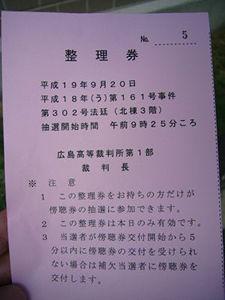 No. 5
整理券
平成19年9月20日
平成18年(う)第161号事件
第302号法廷(北棟3階)
抽選開始時間 午前9時25分ころ
広島高等裁判所第1部
裁判長
※ 注意
1 この整理券をお持ちの方だけが
傍聴券の抽選に参加できます。
2 この整理券は本日のみ有効です。
3 当選者が傍聴券交付開始から5
分以内に傍聴券の交付を受けられ
ない場合は補欠当選者に傍聴券を
交付します。